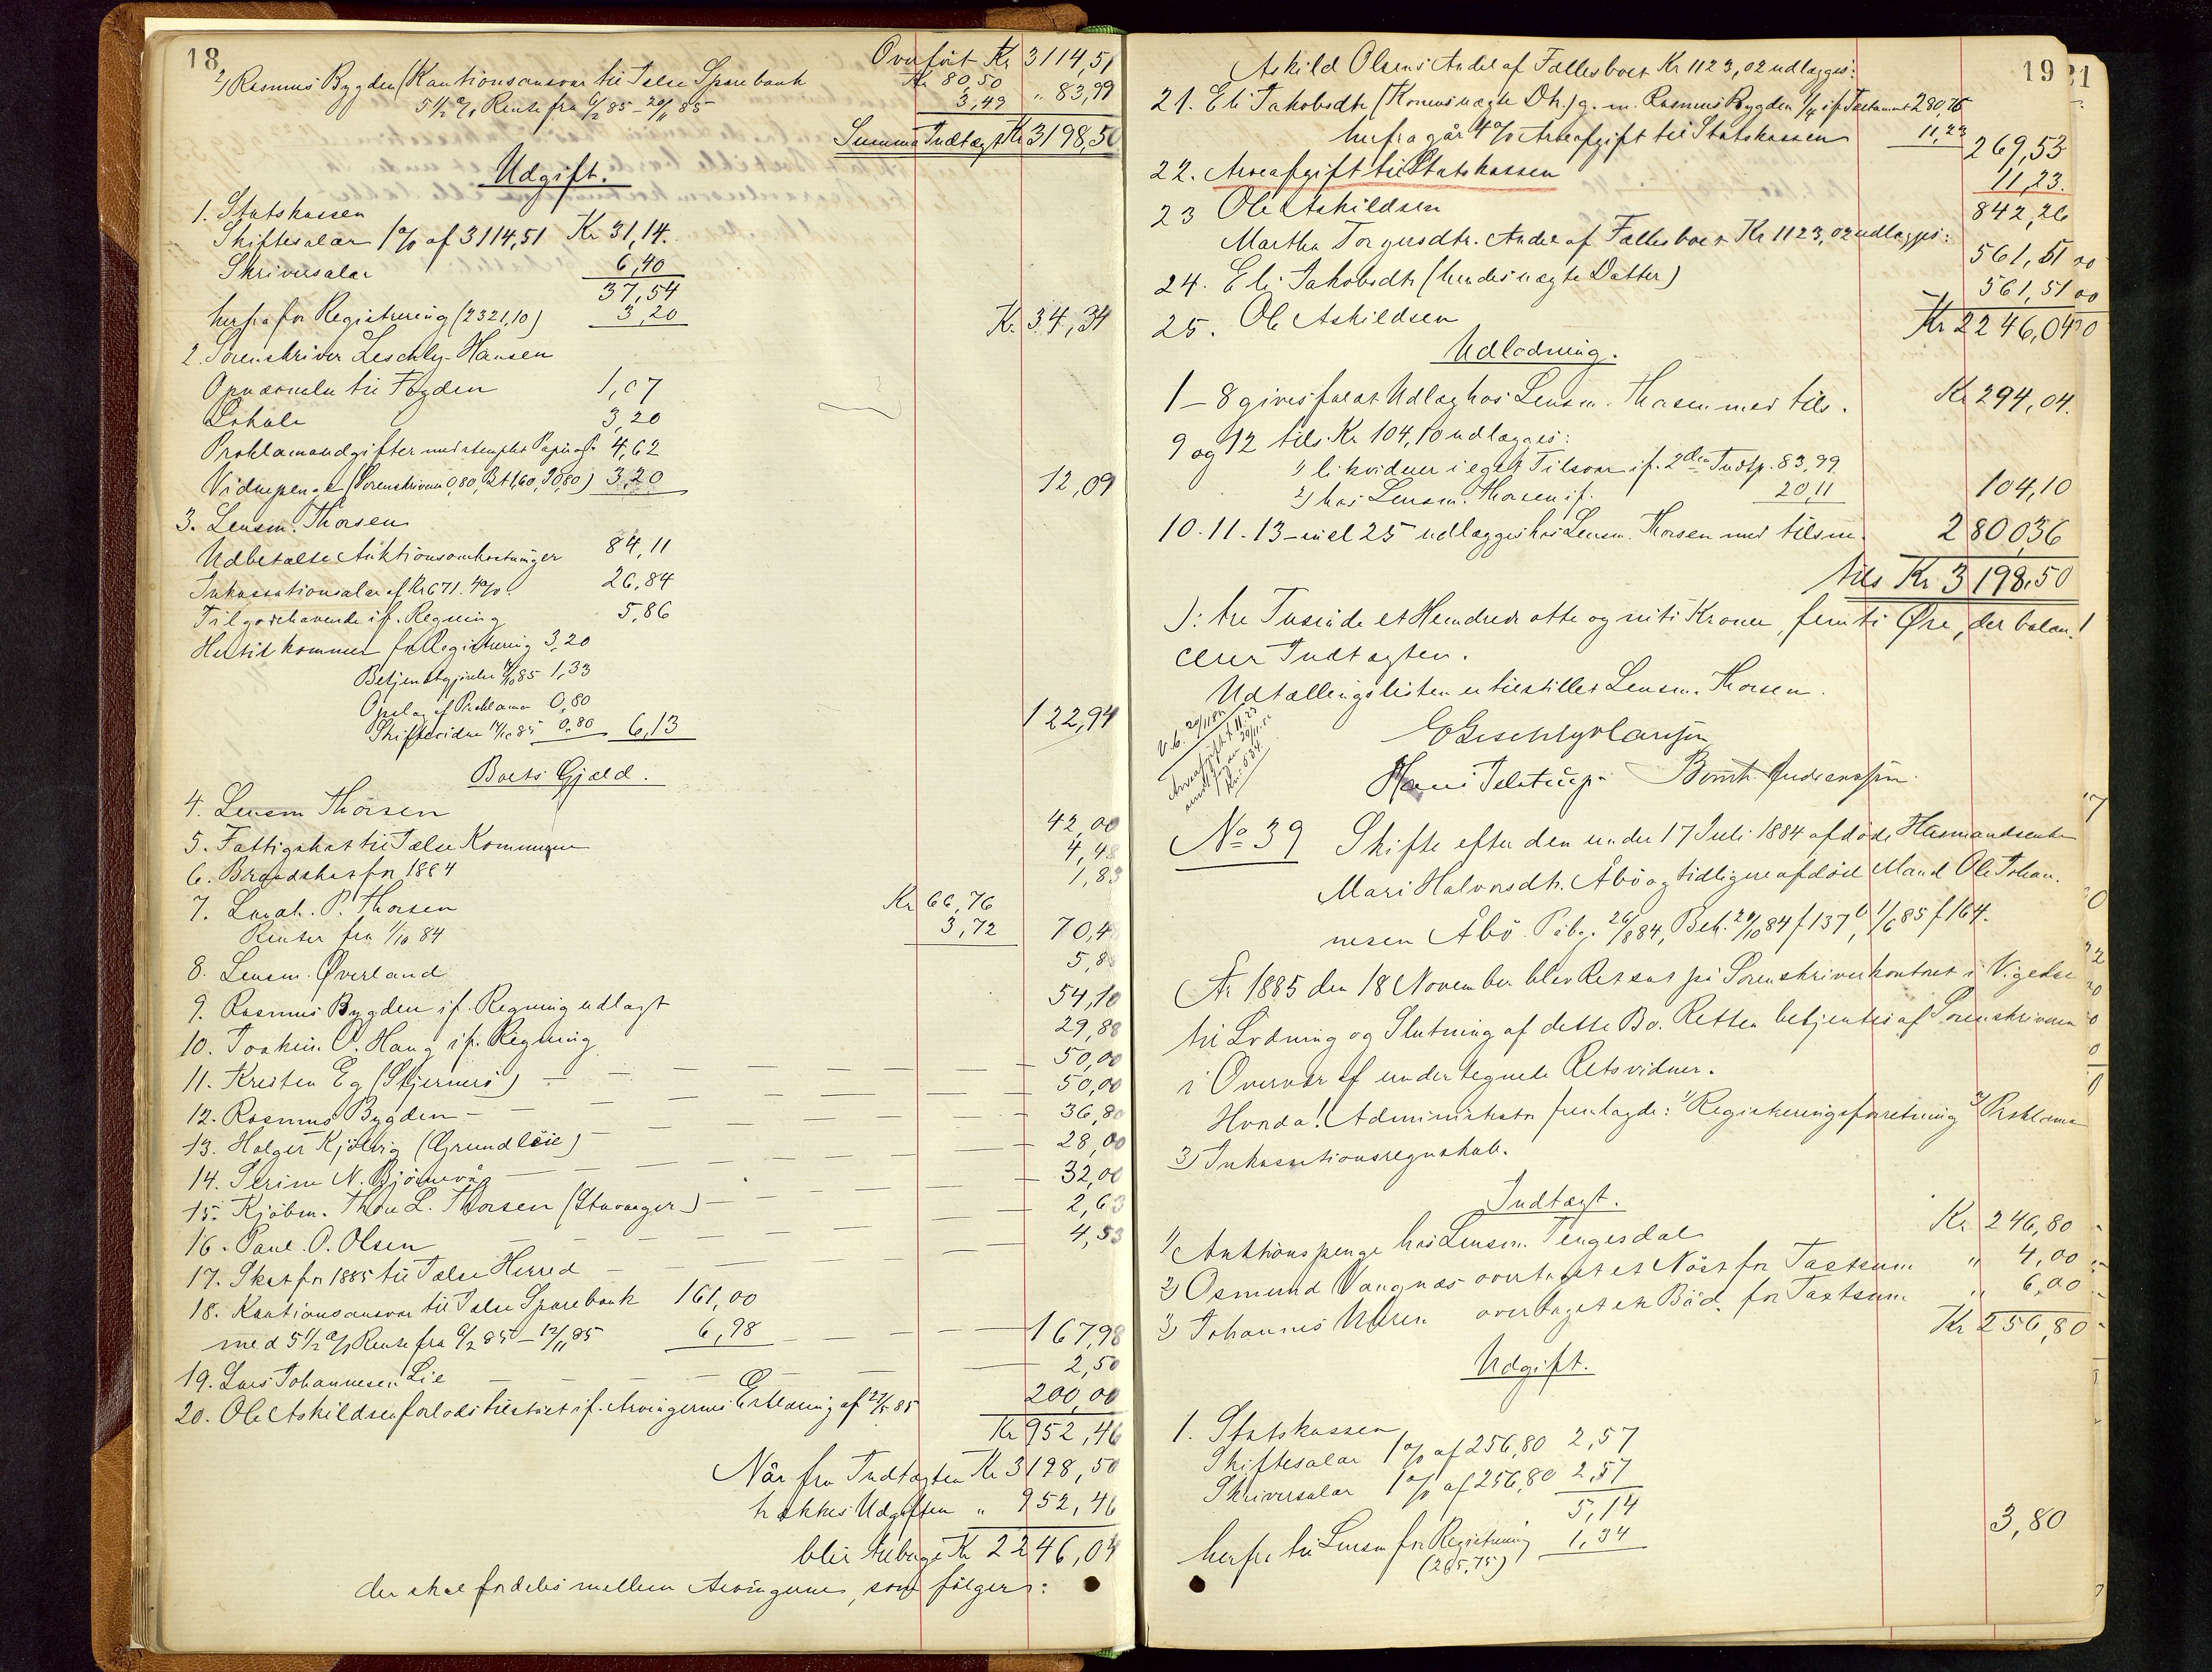 18
Overført Kr 3114,51
2) Rasmus Bygden (Kautionsansvar til Jelse Sparebank Kr 80,50
5 1/2 % Rente fra 6/2 85 - 20/11 85 3,49 " 83,99
Summa Indtægt Kr 3198,50
Udgift.
1. Statskassen
Skiftesalær 1 % af 3114,51 Kr 31,14.
Skriversalær 6,40
37,54
herfra for Registrering (2321,10) 3,20 Kr 34,34
2. Sorenskriver Zeschly-Hansen
Opnævnelse til Fogden 1,07
Lokale 3,20
Proklamaudgifter med stemplet Papir 4,62
Vidnepenge (Sorenskriveren 0,80, 1,60, 0,80) 3,20 12,09
3. Lensm. Thorsen
Udbetalte Auktionsomkostninger 84,11
Inkassationsalær af Kr 671. 4 %. 26,84
Tilgodehavende if. Regning 5,86
Hertil kommer for Registrering 3,20
Betjent 85 1,33
Opslag af Proklama 0,80
Skiftevidne 85 0,80 6,13 122,94
Boets Gjæld.
4. Lensm Thorsen 42,00
5. Fattigskat til Jelse Kommune 4,48
6. Brandskat for 1884 1,83
7. P. Thorsen Kr 66,76
Renter fra 1/10 84 3,72 70,4
8. Lensm. Øverland 5,8
9. Rasmus Bygden if. Regning udlagt 54,10
10. Joakim O. Haug if. Regning 29,88
11. Kristen Eg (Stjernerö) — 50,00
12. Rasmus Bygden — 50,00
13. Holger Kjölvig (Grundleie) — 36,80
14. Serine N. Bjørnevåg — 28,00
15. Kjöbm. Thore L. Thorsen (Stavanger) — 32,00
16. Paul O. Olsen — 2,63
17. Skat for 1885 til Jelse Herred — 4,53
18. Kautionsansvar til Jelse Sparebank 161,00
med 5 1/2 % Rente fra 6/2 85 - 12/11 85 6,98 — 167,98
19. Lars Johannesen Lie — 2,50
20. Ole Askildsen forlods tilstået if. Arvingernes Erklæring af 27/5 85 200,00
Kr 952,46
Når fra Indtægten Kr 3198,50
trækkes Udgiften " 952,46
blir tilbage Kr 2246,04
der skal fordeles mellem Arvingerne, som følger:
19
21
Askild Olsens Andel af Fællesboet Kr 1123,02 udlægges:
21. Eli Jakobsdtr (Konens uægte Dtr.) g. m. Rasmus Bygden 1/4 if. Testament 280,76
herfra går 4 % Arveafgift til Statskassen 11,23 269,53
22. Arveafgift til Statskassen 11,23.
23 Ole Askildsen 842,26
Martha Torgersdtr. Andel af Fællesboet Kr 1123,02 udlægges:
24. Eli Jakobsdtr (hendes uægte Datter) 561,51
25. Ole Askildsen 561,51
Kr 2246,04
Udlodning.
1 - 8 gives Udlæg hos Lensm. Thorsen med tils. Kr 294,04.
9 og 12 tils. Kr 104,10 udlægges:
1) likviderer i eget Tilsvar if. 2den Indtp. 83,99
2) hos Lensm. Thorsen if. 20,11 104,10
10. 11. 13 - incl 25 udlægges hos Lensm. Thorsen med tilsm. 2800,36
tils Kr 3198,50
): tre Tusinde et Hundrede otte og niti Kroner, femti Øre, der balan-
cerer Indtægten.
Udtællingslisten er tilstillet Lensm. Thorsen.
V. 6. 20/11 85
Arveafgift 11,23
Hans Telstrup. Andreassen
No 39 Skifte efter den under 17 Juli 1884 afdøde Husmandsenke
Mari Halvorsdtr. Åbö og tidligere afdöd Mand Ole Johan-
nesen Åbö. Påbeg. 26/8 84, Beh. 29/10 84 f 137b, 1/6 85 f 164.
År 1885 den 18 November blev Ret sat på Sorenskriverkontoret i Vigedal
til Lodning og Slutning af dette Bo. Retten betjentes af Sorenskriveren
i Overvær af undertegnede Retsvidner.
Hvorda! Administrator fremlagde: 1) Registreringsforretning 2) Proklama
3) Inkassationsregnskab.
Indtægt.
1) Auktionspenge hos Lensm. Tengesdal Kr 246,80
2) Osmund Vangnæs overtaget et Nöst for Taxtsum " 4,00
3) Johannes overtaget en Båd for Taxtsum " 6,00
Kr 256,80
Udgift.
1. Statskassen
Skiftesalær 1 % af 256,80 2,57
Skriversalær 1 % af 256,80 2,57
5,14
herfra til Lensm for Registrering 1,34 3,80
(265,75)